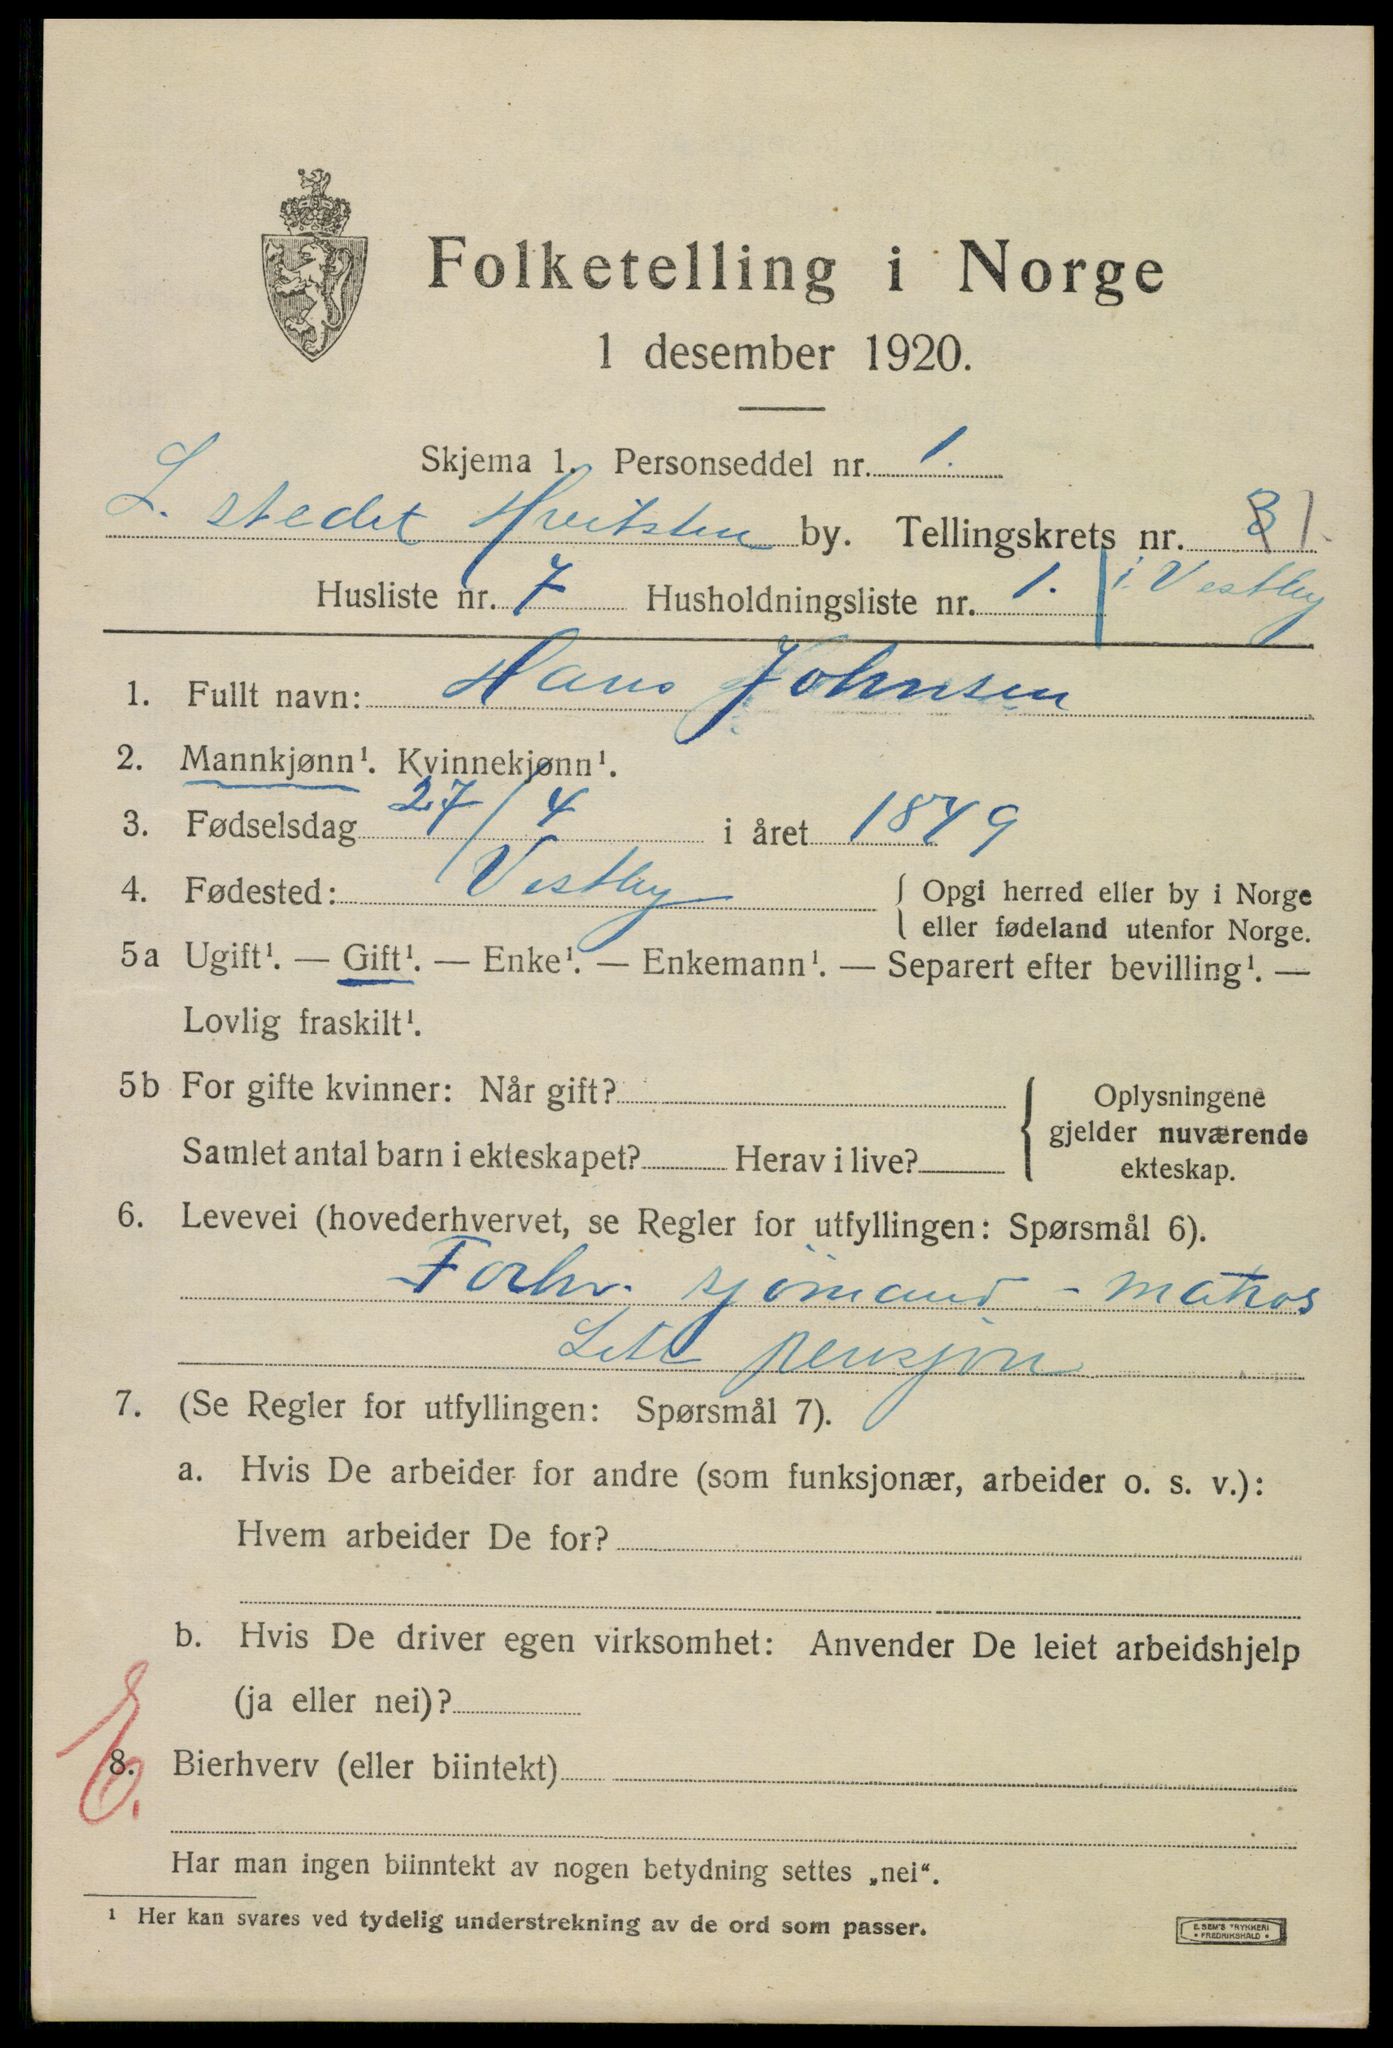 Folketelling i Norge
1 desember 1920.
Skjema 1. Personseddel nr. 1.
L. stedet Hvitsten by. Tellingskrets nr. 1.
Husliste nr. 7 Husholdningsliste nr. 1. i Vestby
1. Fullt navn: Hans Johnsen
2. Mannkjønn¹. Kvinnekjønn¹.
3. Fødselsdag 27/4 i året 1849
4. Fødested: Vestby { Opgi herred eller by i Norge
eller fødeland utenfor Norge.
5a Ugift¹. — Gift¹. — Enke¹. — Enkemann¹. — Separert efter bevilling¹. —
Lovlig fraskilt¹.
5b For gifte kvinner: Når gift? { Oplysningene
gjelder nuværende
Samlet antal barn i ekteskapet? Herav i live? ekteskap.
6. Levevei (hovederhvervet, se Regler for utfyllingen: Spørsmål 6).
Forhv. sjömand - matros
Lite pensjon
7. (Se Regler for utfyllingen: Spørsmål 7).
a. Hvis De arbeider for andre (som funksjonær, arbeider o. s. v.):
Hvem arbeider De for?
b. Hvis De driver egen virksomhet: Anvender De leiet arbeidshjelp
(ja eller nei)?
8. Bierhverv (eller biintekt)
Har man ingen biinntekt av nogen betydning settes „nei“.
¹ Her kan svares ved tydelig understrekning av de ord som passer.
E. SEM'S TRYKKERI
• FREDRIKSHALD •